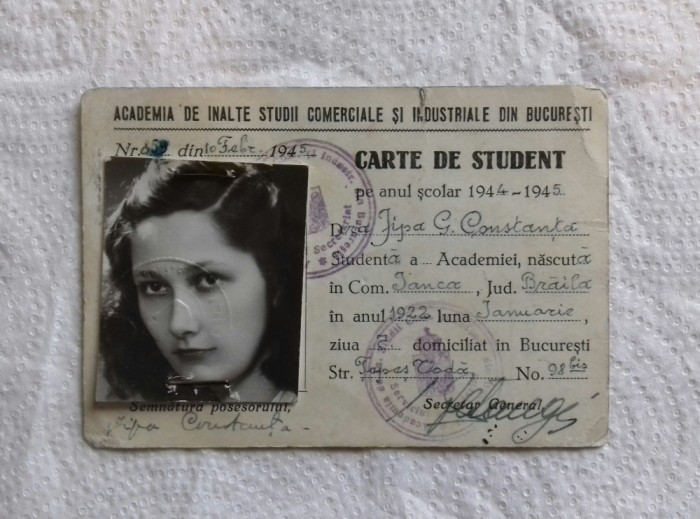 ACADEMIA DE INALTE STUDII COMERCIALE ȘI INDUSTRIALE DIN BUCUREȘTI
Nr. 659 din 10 Febr. 1945
CARTE DE STUDENT
pe anul școlar 1944-1945
D-ra Jipa G. Constanța
Studentă a Academiei, născută
în Com. Ianca, Jud. Brăila
în anul 1922 luna Ianuarie,
ziua 2 domiciliat în București
Str. Țepeș Vodă, No. 98 bis
Semnătura posesorului,
Jipa Constanța
Secretar General,
Secretariat